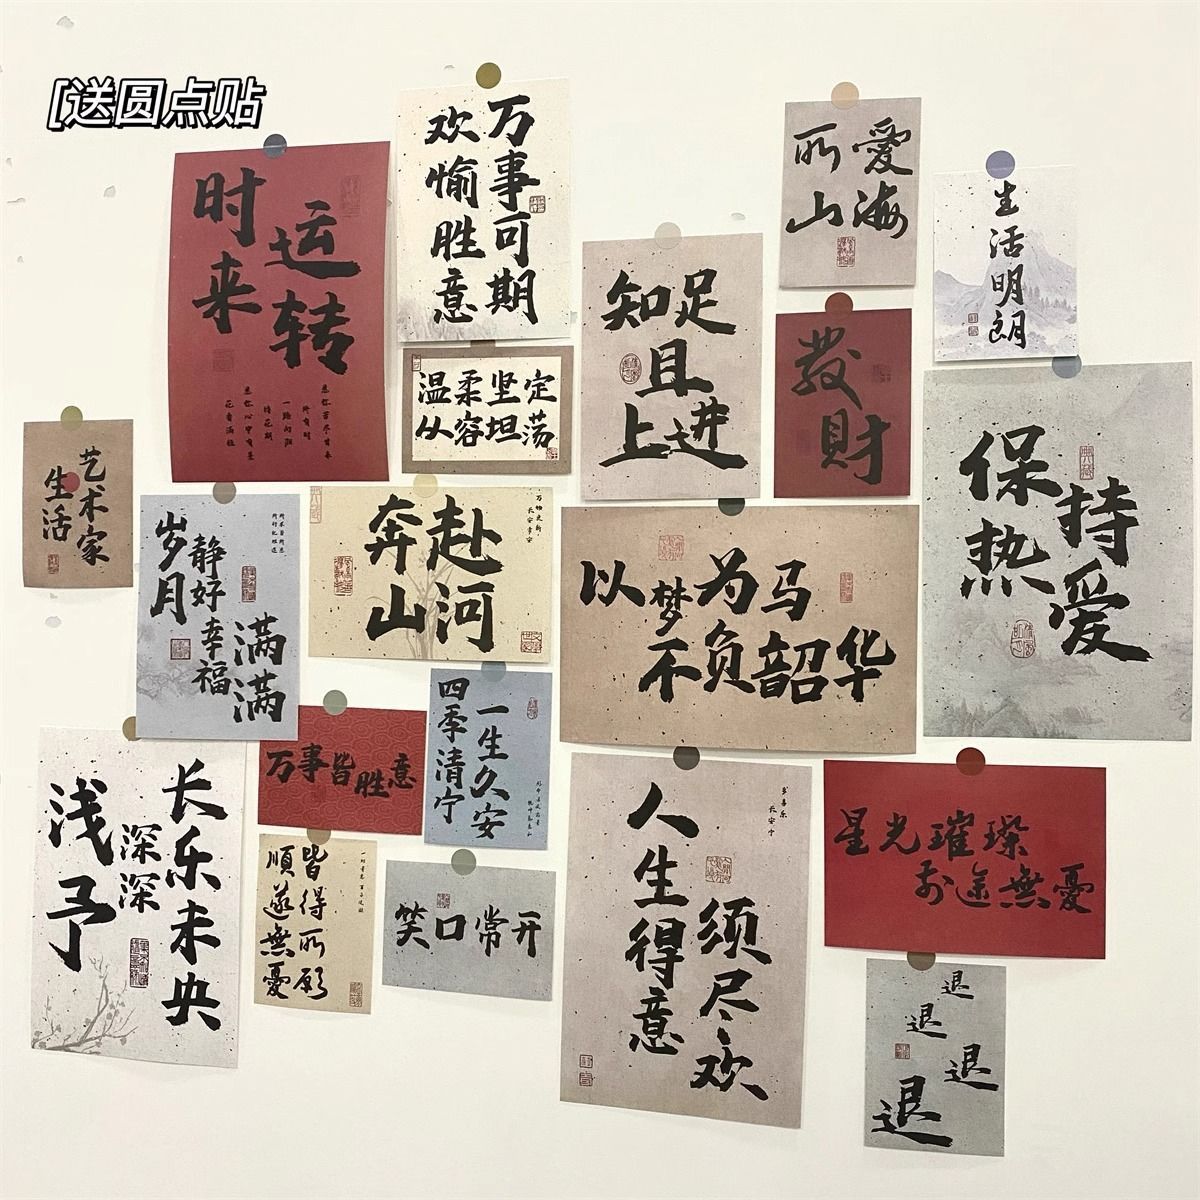 [送圆点贴
时来
运转
万事可期
欢愉胜意
爱海
所山
生活明朗
知足
且
上进
發财
温柔坚定
从容坦荡
保持
热爱
艺术家
生活
岁月
静好
幸福
满满
奔赴
山河
万物更新
长安常安
以梦为马
不负韶华
万事皆胜意
一生久安
四季清宁
长乐未央
深深
浅予
皆得所願
順遂無憂
笑口常开
人生得意
须尽欢
多喜乐
长安宁
星光璀璨
前途無憂
退
退
退
退